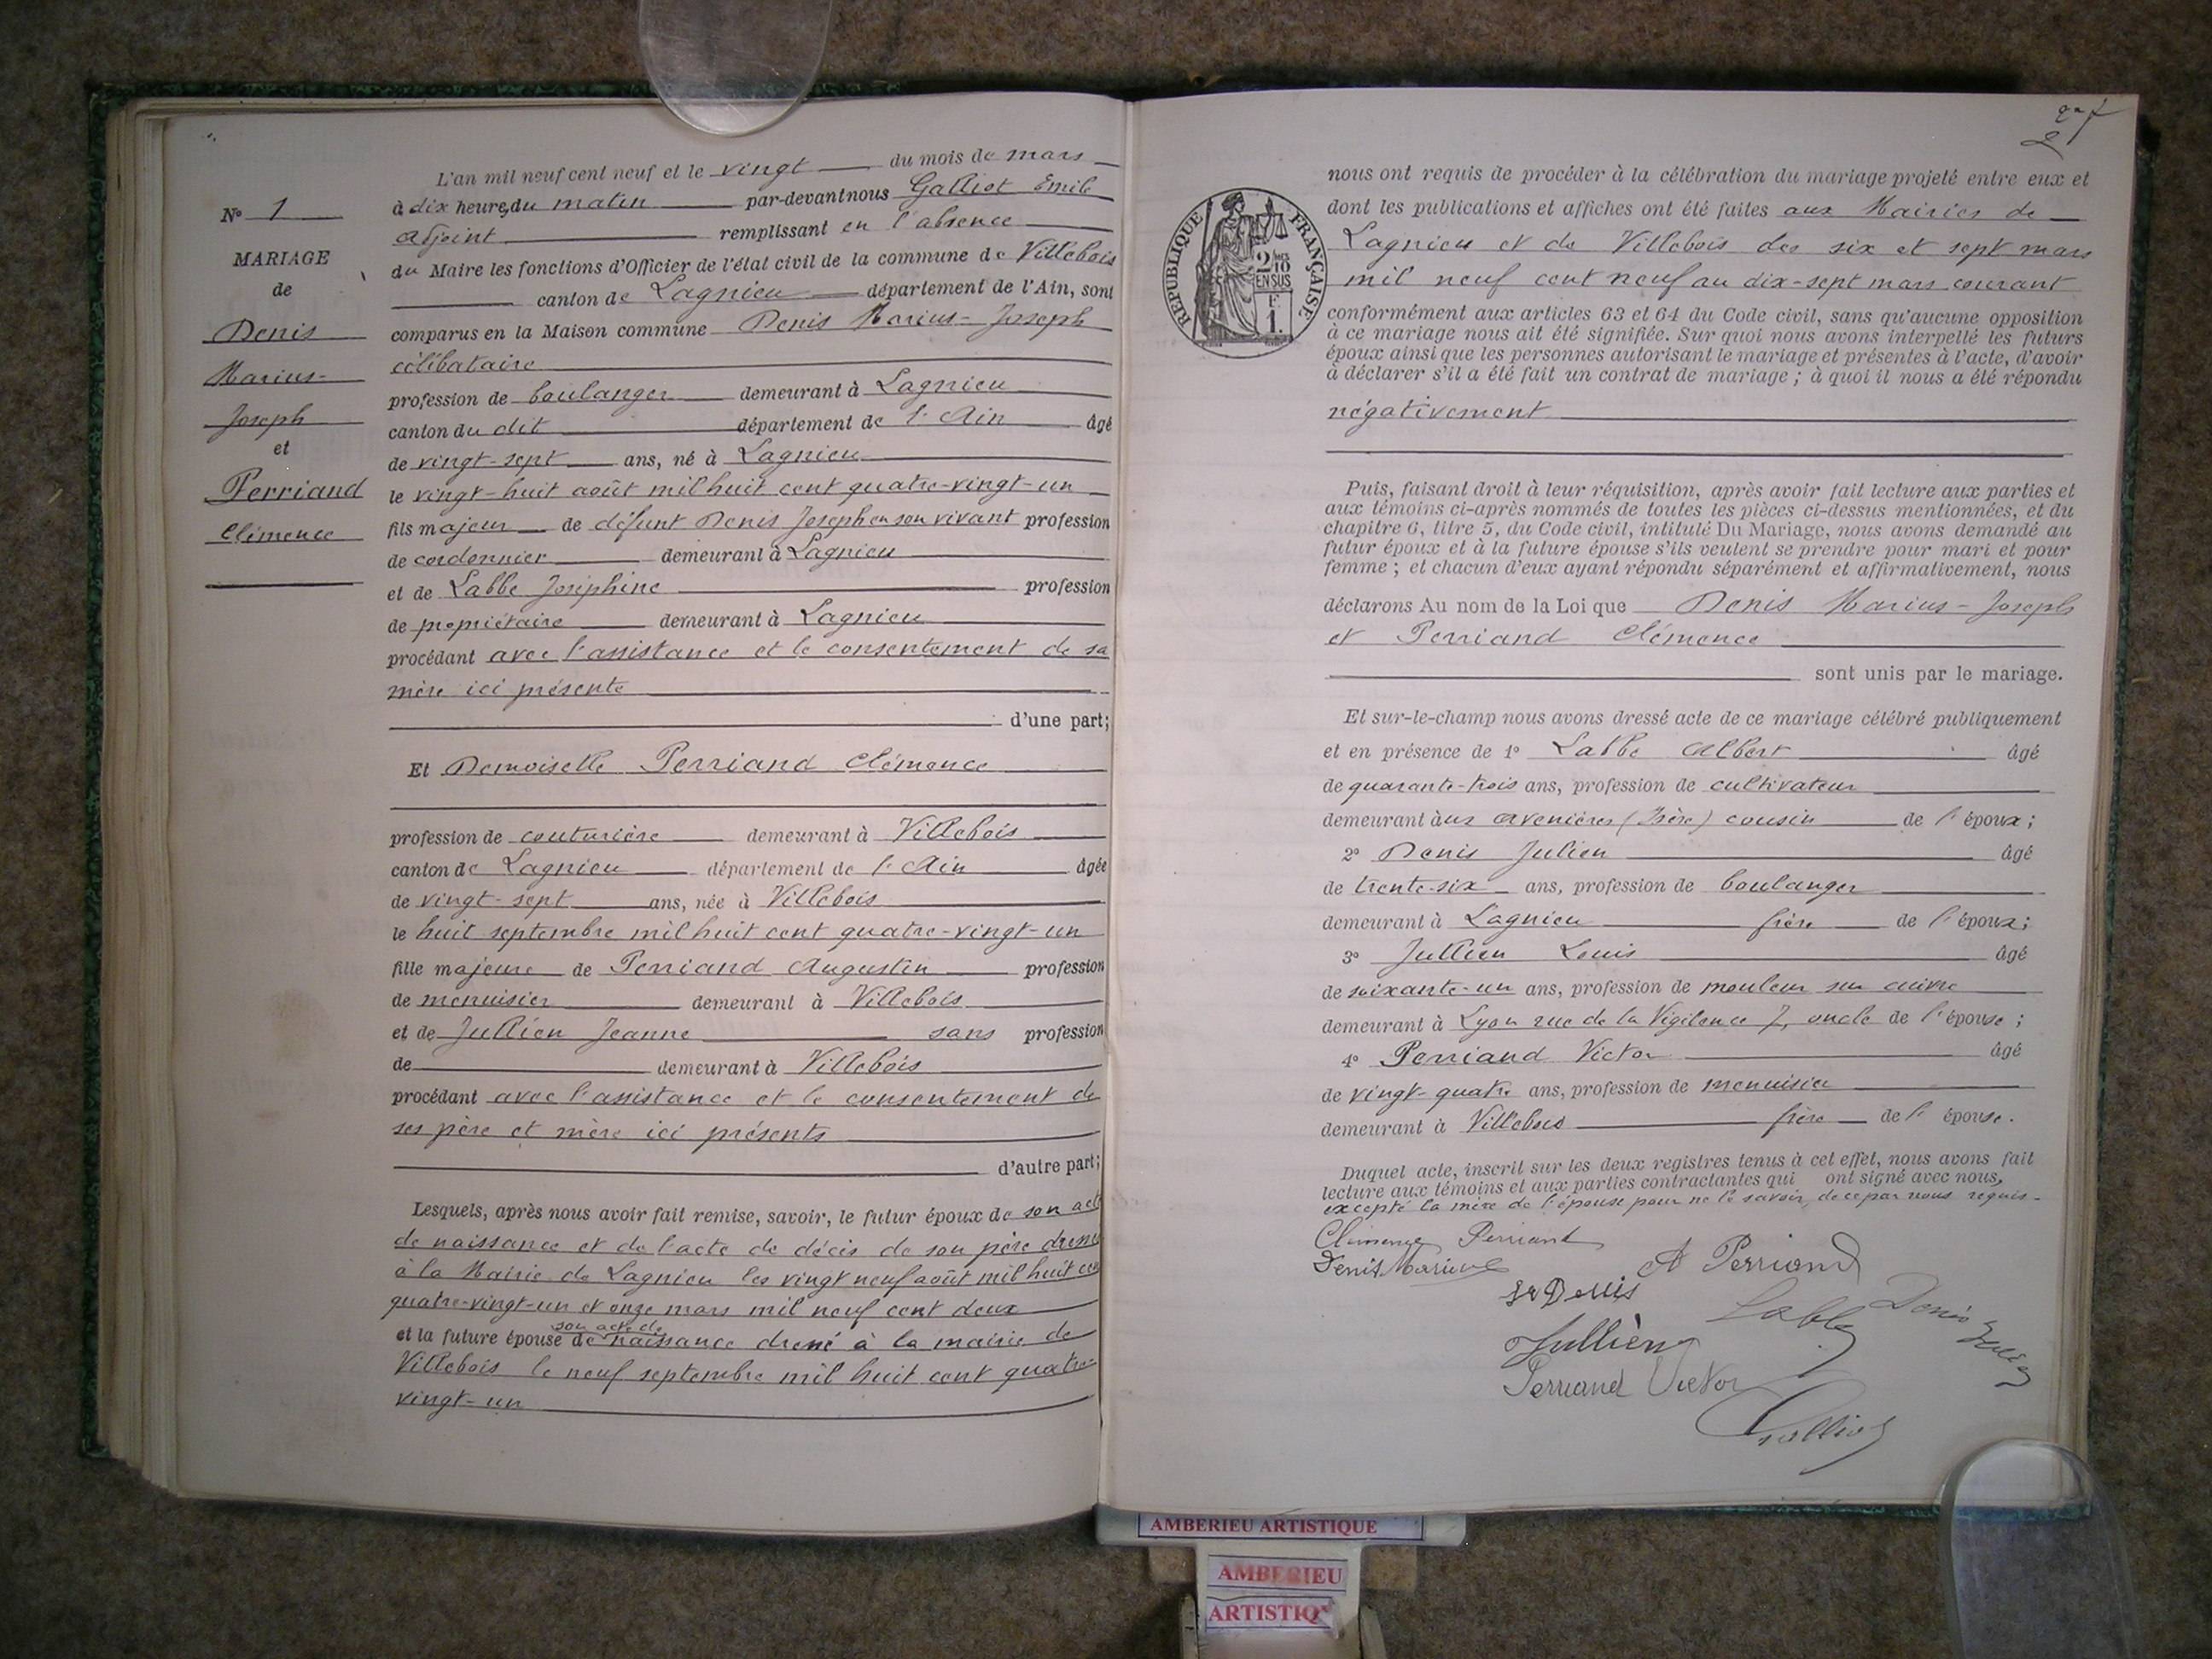 N° 1
MARIAGE
de
Denis
Marius-
Joseph
et
Perriand
Clémence
L'an mil neuf cent neuf et le vingt du mois de mars
à dix heures du matin par-devant nous Galliot Emile
adjoint remplissant en l'absence
du Maire les fonctions d'Officier de l'état civil de la commune de Villebois
canton de Lagnieu département de l'Ain, sont
comparus en la Maison commune Denis Marius-Joseph
célibataire
profession de boulanger demeurant à Lagnieu
canton du dit département de l'Ain âgé
de vingt-sept ans, né à Lagnieu
le vingt-huit août mil huit cent quatre-vingt-un
fils majeur de défunt Denis Joseph en son vivant profession
de cordonnier demeurant à Lagnieu
et de Labbe Joséphine profession
de propriétaire demeurant à Lagnieu
procédant avec l'assistance et le consentement de sa
mère ici présente
d'une part;
Et Demoiselle Perriand Clémence
profession de couturière demeurant à Villebois
canton de Lagnieu département de l'Ain âgée
de vingt-sept ans, née à Villebois
le huit septembre mil huit cent quatre-vingt-un
fille majeure de Perriand Augustin profession
de menuisier demeurant à Villebois
et de Jullien Jeanne sans profession
de demeurant à Villebois
procédant avec l'assistance et le consentement de
ses père et mère ici présents
d'autre part;
Lesquels, après nous avoir fait remise, savoir, le futur époux de son acte
de naissance et de l'acte de décès de son père dressés
à la Mairie de Lagnieu les vingt neuf août mil huit cent
quatre-vingt-un et onze mars mil neuf cent deux
son acte de
et la future épouse de naissance dressé à la mairie de
Villebois le neuf septembre mil huit cent quatre-
vingt-un
REPUBLIQUE FRANÇAISE
2/10
EN SUS
F.
1.
nous ont requis de procéder à la célébration du mariage projeté entre eux et
dont les publications et affiches ont été faites aux Mairies de
Lagnieu et de Villebois des six et sept mars
mil neuf cent neuf au dix-sept mars courant
conformément aux articles 63 et 64 du Code civil, sans qu'aucune opposition
à ce mariage nous ait été signifiée. Sur quoi nous avons interpellé les futurs
époux ainsi que les personnes autorisant le mariage et présentes à l'acte, d'avoir
à déclarer s'il a été fait un contrat de mariage ; à quoi il nous a été répondu
négativement
Puis, faisant droit à leur réquisition, après avoir fait lecture aux parties et
aux témoins ci-après nommés de toutes les pièces ci-dessus mentionnées, et du
chapitre 6, titre 5, du Code civil, intitulé Du Mariage, nous avons demandé au
futur époux et à la future épouse s'ils veulent se prendre pour mari et pour
femme ; et chacun d'eux ayant répondu séparément et affirmativement, nous
déclarons Au nom de la Loi que Denis Marius-Joseph
et Perriand Clémence
sont unis par le mariage.
Et sur-le-champ nous avons dressé acte de ce mariage célébré publiquement
et en présence de 1° Labbe Albert âgé
de quarante-trois ans, profession de cultivateur
demeurant aux avenières (Isère) cousin de l'époux;
2° Denis Julien âgé
de trente-six ans, profession de boulanger
demeurant à Lagnieu frère de l'époux;
3° Jullien Louis âgé
de soixante-un ans, profession de mouleur sur cuivre
demeurant à Lyon rue de la Vigilence 7, oncle de l'épouse ;
4° Perriand Victor âgé
de vingt-quatre ans, profession de menuisier
demeurant à Villebois frère de l'épouse.
Duquel acte, inscrit sur les deux registres tenus à cet effet, nous avons fait
lecture aux témoins et aux parties contractantes qui ont signé avec nous,
excepté la mère de l'épouse pour ne le savoir, de ce par nous requis.
Clémence Perriand
Denis Marius A Perriand
Denis
Labbe Denis Julien
Jullien
Perriand Victor
Galliot
AMBERIEU ARTISTIQUE
AMBERIEU
ARTISTIQ